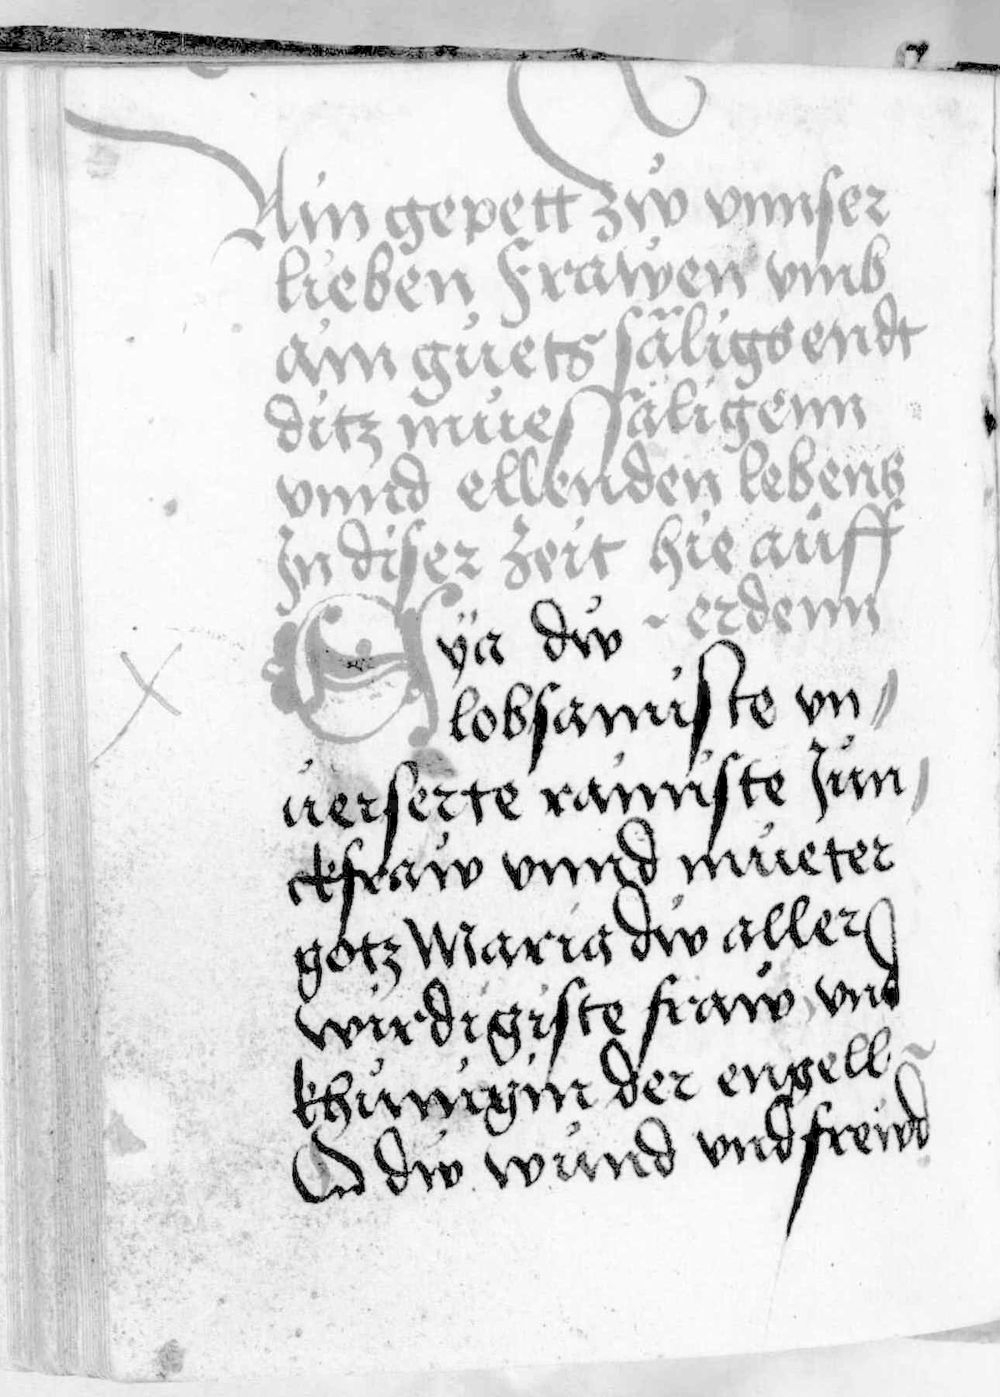 Ain gepett zw vnnser
lieben Frawen vmb
ain guets säligs endt
ditz müesäligenn
vnnd ellenden lebens
In diser Zeit hie auff
erdenn
Eya dw
lobsamiste vn
uerserte rainiste Jun
ckfraw vnnd mueter
gotz Maria dw aller
wirdigiste fraw vnd
khunigin der engell
O dw wunn vnd freiwd